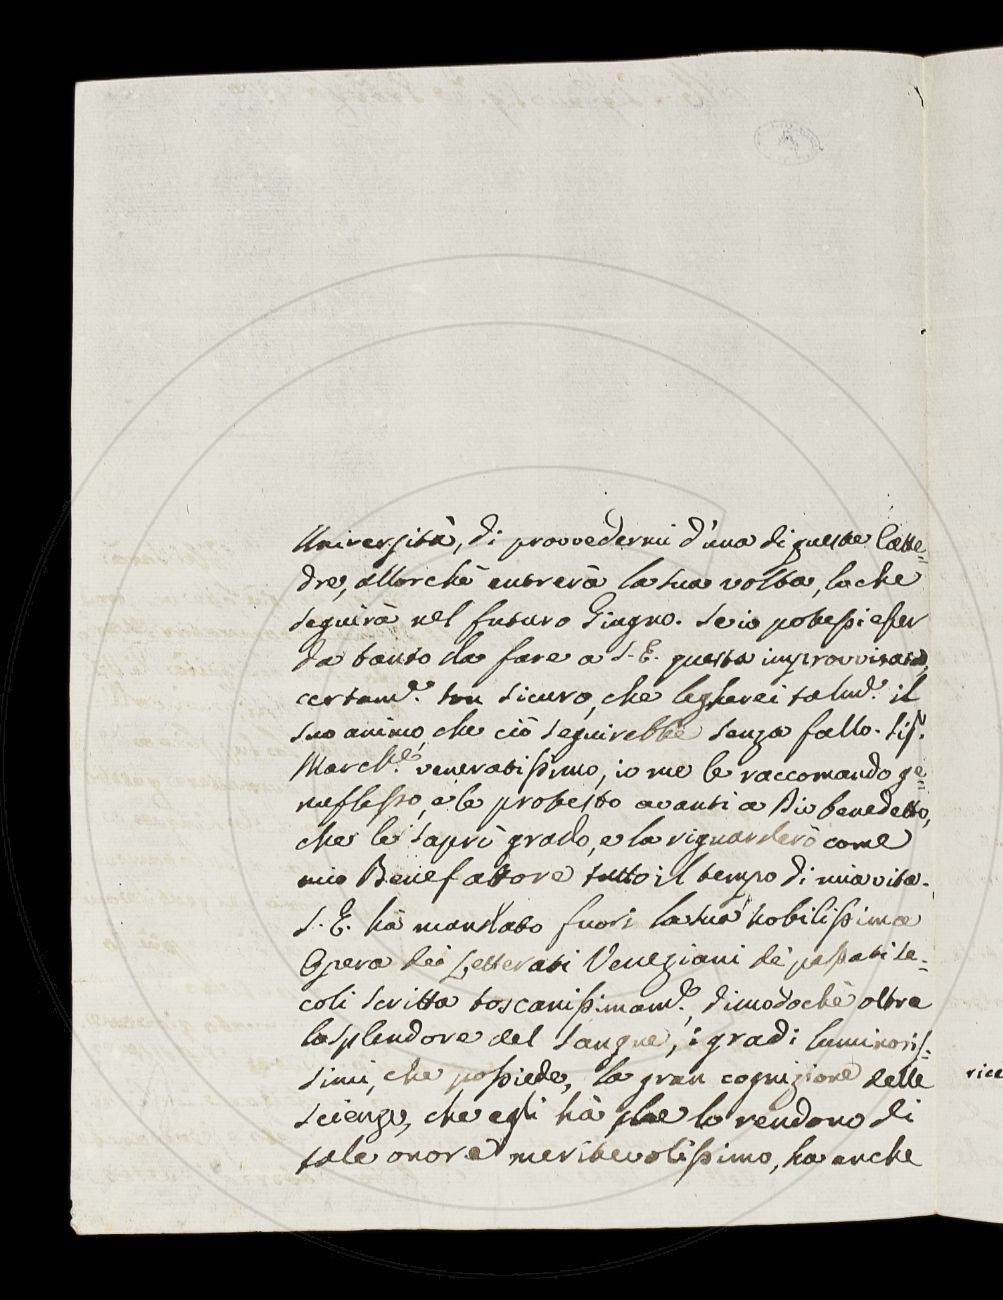 Università, di provvedermi d'una di queste Catte=
dre, allorchè entrerà la sua volta, loche
seguirà nel futuro Giugno. Se io potessi esser
da tanto da fare a S. E. questa improvvisata,
certam.e son sicuro, che legherei talm.e il
suo animo, che ciò seguirebbe senza fallo. Sig.r
March.e veneratissimo, io me le raccomando ge=
neflesso, e le protesto avanti a Dio benedetto,
che le saprò grado, e la riguarderò come
mio Benefattore tutto il tempo di mia vita.
S. E. hà mandato fuori la sua nobilissima
Opera dei Letterati Veneziani dè passati se=
coli scritta toscanissimam.e, dimodochè oltre
lo splendore del sangue, i gradi luminosis=
simi, che possiede, la gran cognizione delle
scienze, che egli hà che lo rendono di
tale onore meritevolissimo, ha anche
rice